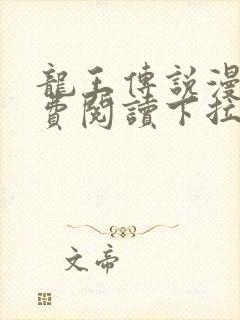 龍王傳說漫
費閱讀下拉
文帝